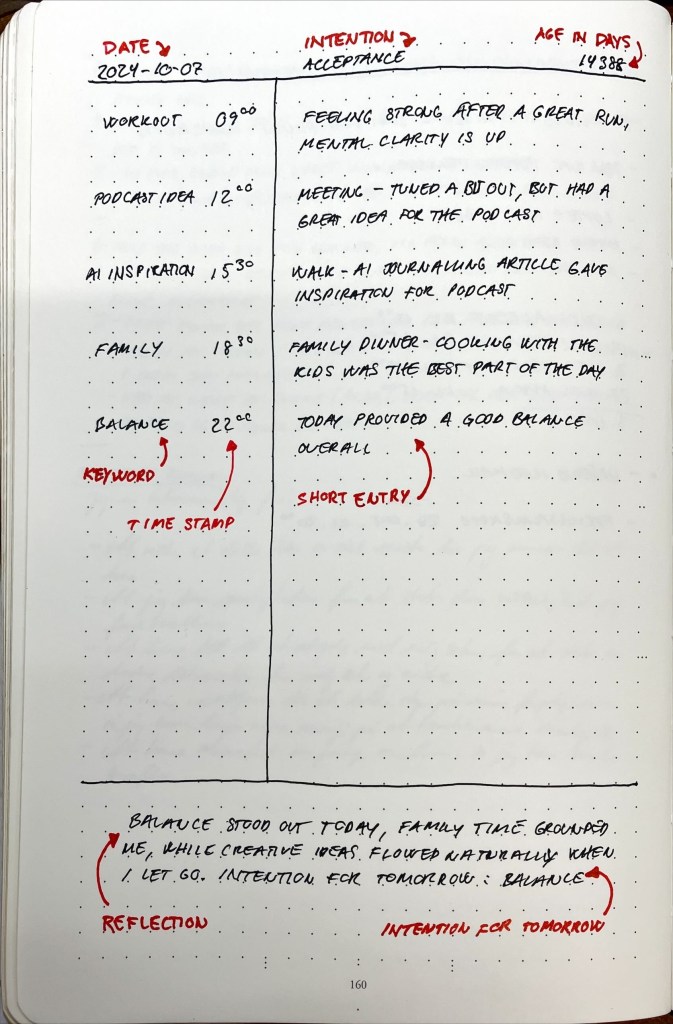 DATE
INTENTION
AGE IN DAYS
2024-10-07
ACCEPTANCE
14388
WORKOUT 09⁰⁰ FEELING STRONG AFTER A GREAT RUN,
MENTAL CLARITY IS UP
PODCAST IDEA 12⁰⁰ MEETING - TUNED A BIT OUT, BUT HAD A
GREAT IDEA FOR THE PODCAST
AI INSPIRATION 15³⁰ WALK - AI JOURNALING ARTICLE GAVE
INSPIRATION FOR PODCAST
FAMILY 18³⁰ FAMILY DINNER - COOKING WITH THE
KIDS WAS THE BEST PART OF THE DAY
BALANCE 22⁰⁰ TODAY PROVIDED A GOOD BALANCE
OVERALL
KEYWORD
TIME STAMP
SHORT ENTRY
BALANCE STOOD OUT TODAY, FAMILY TIME GROUNDED
ME, WHILE CREATIVE IDEAS FLOWED NATURALLY WHEN
I LET GO. INTENTION FOR TOMORROW: BALANCE
REFLECTION
INTENTION FOR TOMORROW
160